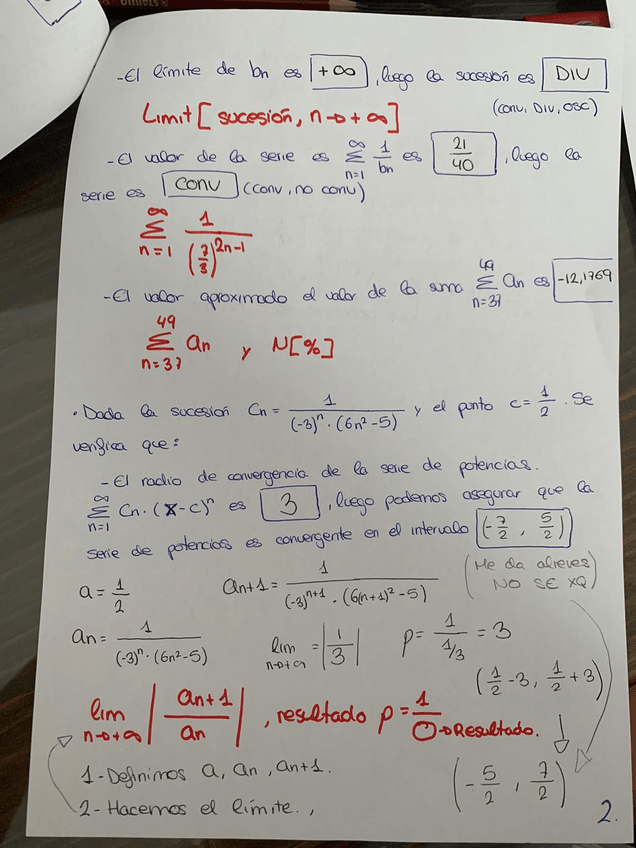 -El límite de bn es +∞, luego la sucesión es DIV
(conv, DIV, OSC)
Limit[sucesión, n→+∞]
-El valor de la serie es ∑_{n=1}^{∞} 1/bn es 21/40, luego la
serie es CONV (conv, no conv)
∑_{n=1}^{∞} 1/(7/3)^{2n-1}
-El valor aproximado el valor de la suma ∑_{n=37}^{49} an es -12,1769
∑_{n=37}^{49} an y N[%]
• Dada la sucesión Cn = 1/((-3)^n · (6n²-5)) y el punto c = 1/2. Se
verifica que:
-El radio de convergencia de la serie de potencias.
∑_{n=1}^{∞} Cn · (x-c)^n es 3, luego podemos asegurar que la
serie de potencias es convergente en el intervalo (-7/2, 5/2)
(Me da alreves
NO SE XQ)
a = 1/2
an+1 = 1/((-3)^{n+1} · (6(n+1)²-5))
an = 1/((-3)^n · (6n²-5))
lim_{n→+∞} = |1/3|
ρ = 1/(1/3) = 3
(1/2 - 3, 1/2 + 3)
lim_{n→+∞} |an+1/an|, resultado ρ = 1/○ → Resultado.
1-Definimos a, an, an+1.
(-5/2, 7/2)
2-Hacemos el límite.,
2.